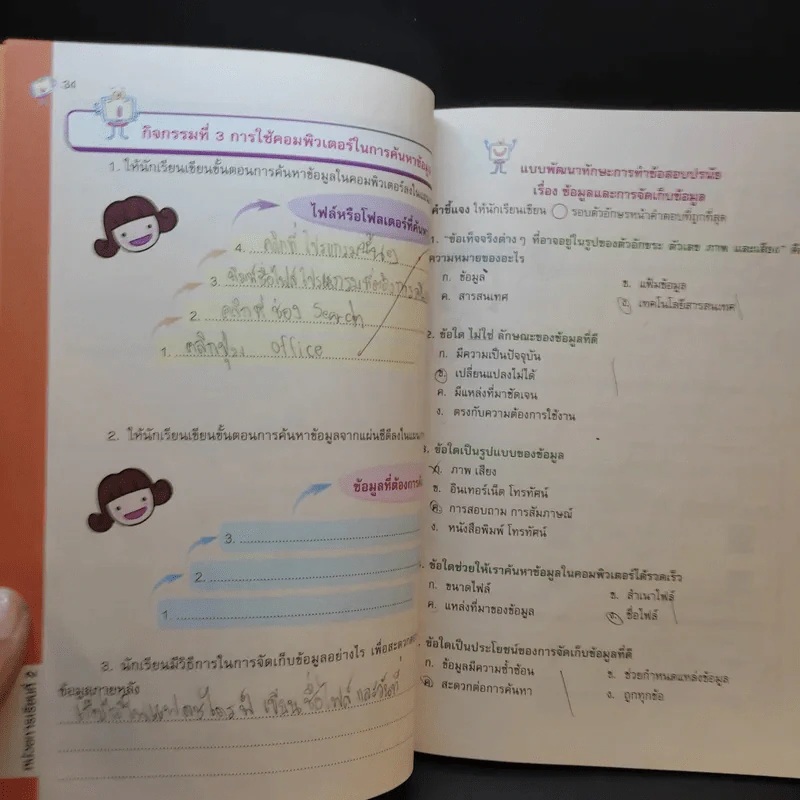 34
กิจกรรมที่ 3 การใช้คอมพิวเตอร์ในการค้นหาข้อมูล
1. ให้นักเรียนเขียนขั้นตอนการค้นหาข้อมูลในคอมพิวเตอร์ลงใน
ไฟล์หรือโฟลเดอร์ที่ค้นหา
4. คลิกที่ โปรแกรมนั้นๆ
3. พิมพ์ชื่อไฟล์ โปรแกรมที่ต้องการ
2. คลิกที่ ช่อง Search
1. คลิกปุ่ม office
2. ให้นักเรียนเขียนขั้นตอนการค้นหาข้อมูลจากแผ่นซีดีลงใน
ข้อมูลที่ต้องการ
3.
2.
1.
3. นักเรียนมีวิธีการในการจัดเก็บข้อมูลอย่างไร เพื่อสะดวก
ข้อมูลภายหลัง
เขียนชื่อไฟล์
แบบพัฒนาทักษะการทำข้อสอบปรนัย
เรื่อง ข้อมูลและการจัดเก็บข้อมูล
คำชี้แจง ให้นักเรียนเขียน รอบตัวอักษรหน้าคำตอบที่ถูกที่สุด
1. "ข้อเท็จจริงต่างๆ ที่อาจอยู่ในรูปของตัวอักขระ ตัวเลข ภาพ และเสียง"
ความหมายของอะไร
ก. ข้อมูล ข. แฟ้มข้อมูล
ค. สารสนเทศ ง. เทคโนโลยีสารสนเทศ
2. ข้อใด ไม่ใช่ ลักษณะของข้อมูลที่ดี
ก. มีความเป็นปัจจุบัน
ข. เปลี่ยนแปลงไม่ได้
ค. มีแหล่งที่มาชัดเจน
ง. ตรงกับความต้องการใช้งาน
ข้อใดเป็นรูปแบบของข้อมูล
ก. ภาพ เสียง
ข. อินเทอร์เน็ต โทรทัศน์
ค. การสอบถาม การสัมภาษณ์
ง. หนังสือพิมพ์ โทรทัศน์
ข้อใดช่วยให้เราค้นหาข้อมูลในคอมพิวเตอร์ได้รวดเร็ว
ก. ขนาดไฟล์ ข. สำเนาไฟล์
ค. แหล่งที่มาของข้อมูล ง. ชื่อไฟล์
ข้อใดเป็นประโยชน์ของการจัดเก็บข้อมูลที่ดี
ก. ข้อมูลมีความซ้ำซ้อน ข. ช่วยกำหนดแหล่งข้อมูล
ค. สะดวกต่อการค้นหา ง. ถูกทุกข้อ